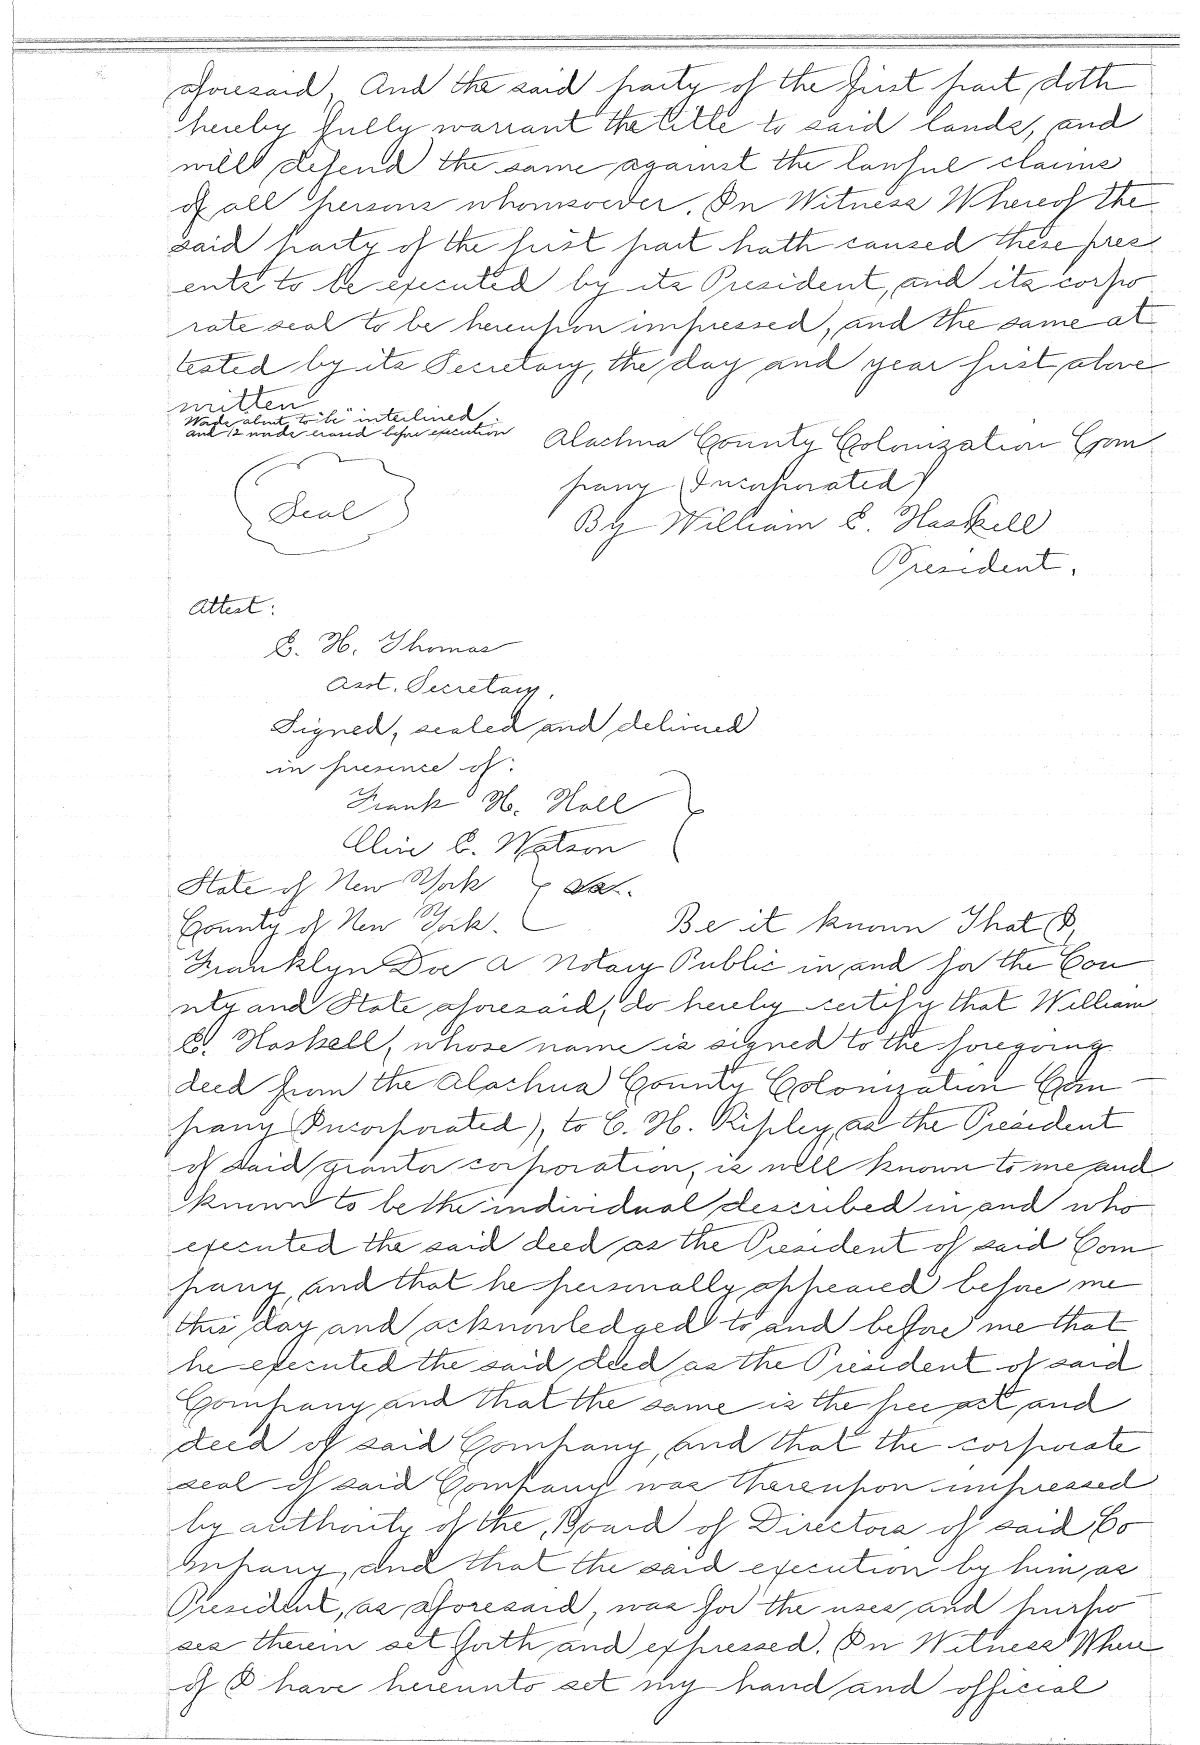 aforesaid, And the said party of the first part, doth
hereby fully warrant the title to said lands, and
will defend the same against the lawful claims
of all persons whomsoever. In Witness Whereof the
said party of the first part hath caused these pres
ents to be executed by its President, and its corpo
rate seal to be hereupon impressed, and the same at
tested by its Secretary, the day and year first above
written
Words "about to "be" interlined
and 12 words erased before execution
Alachua County Colonization Com
pany (Incorporated)
Seal
By William E. Haskell
President.
Attest:
E. H. Thomas
Asst. Secretary.
Signed, sealed and delivered
in presence of:
Frank H. Hall
Clive C. Watson
State of New York } ss.
County of New York. Be it known That I,
Franklyn Doe a Notary Public in and for the Cou
nty and State aforesaid, do hereby certify that William
E. Haskell, whose name is signed to the foregoing
deed from the Alachua County Colonization Com
pany (Incorporated), to C. H. Ripley, as the President
of said grantor corporation, is well known to me and
known to be the individual described in and who
executed the said deed as the President of said Com
pany, and that he personally appeared before me
this day and acknowledged to and before me that
he executed the said deed as the President of said
Company and that the same is the free act and
deed of said Company, and that the corporate
seal of said Company was thereupon impressed
by authority of the Board of Directors of said Co
mpany, and that the said execution by him, as
President, as aforesaid, was for the uses and purpo
ses therein set forth and expressed. In Witness Where
of I have hereunto set my hand and official